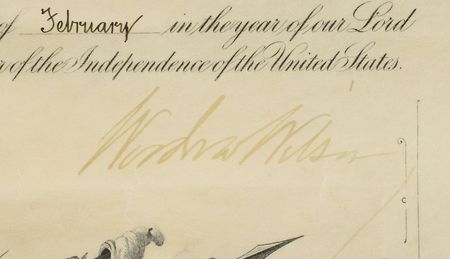 of February in the year of our Lord
r of the Independence of the United States.
Woodrow Wilson